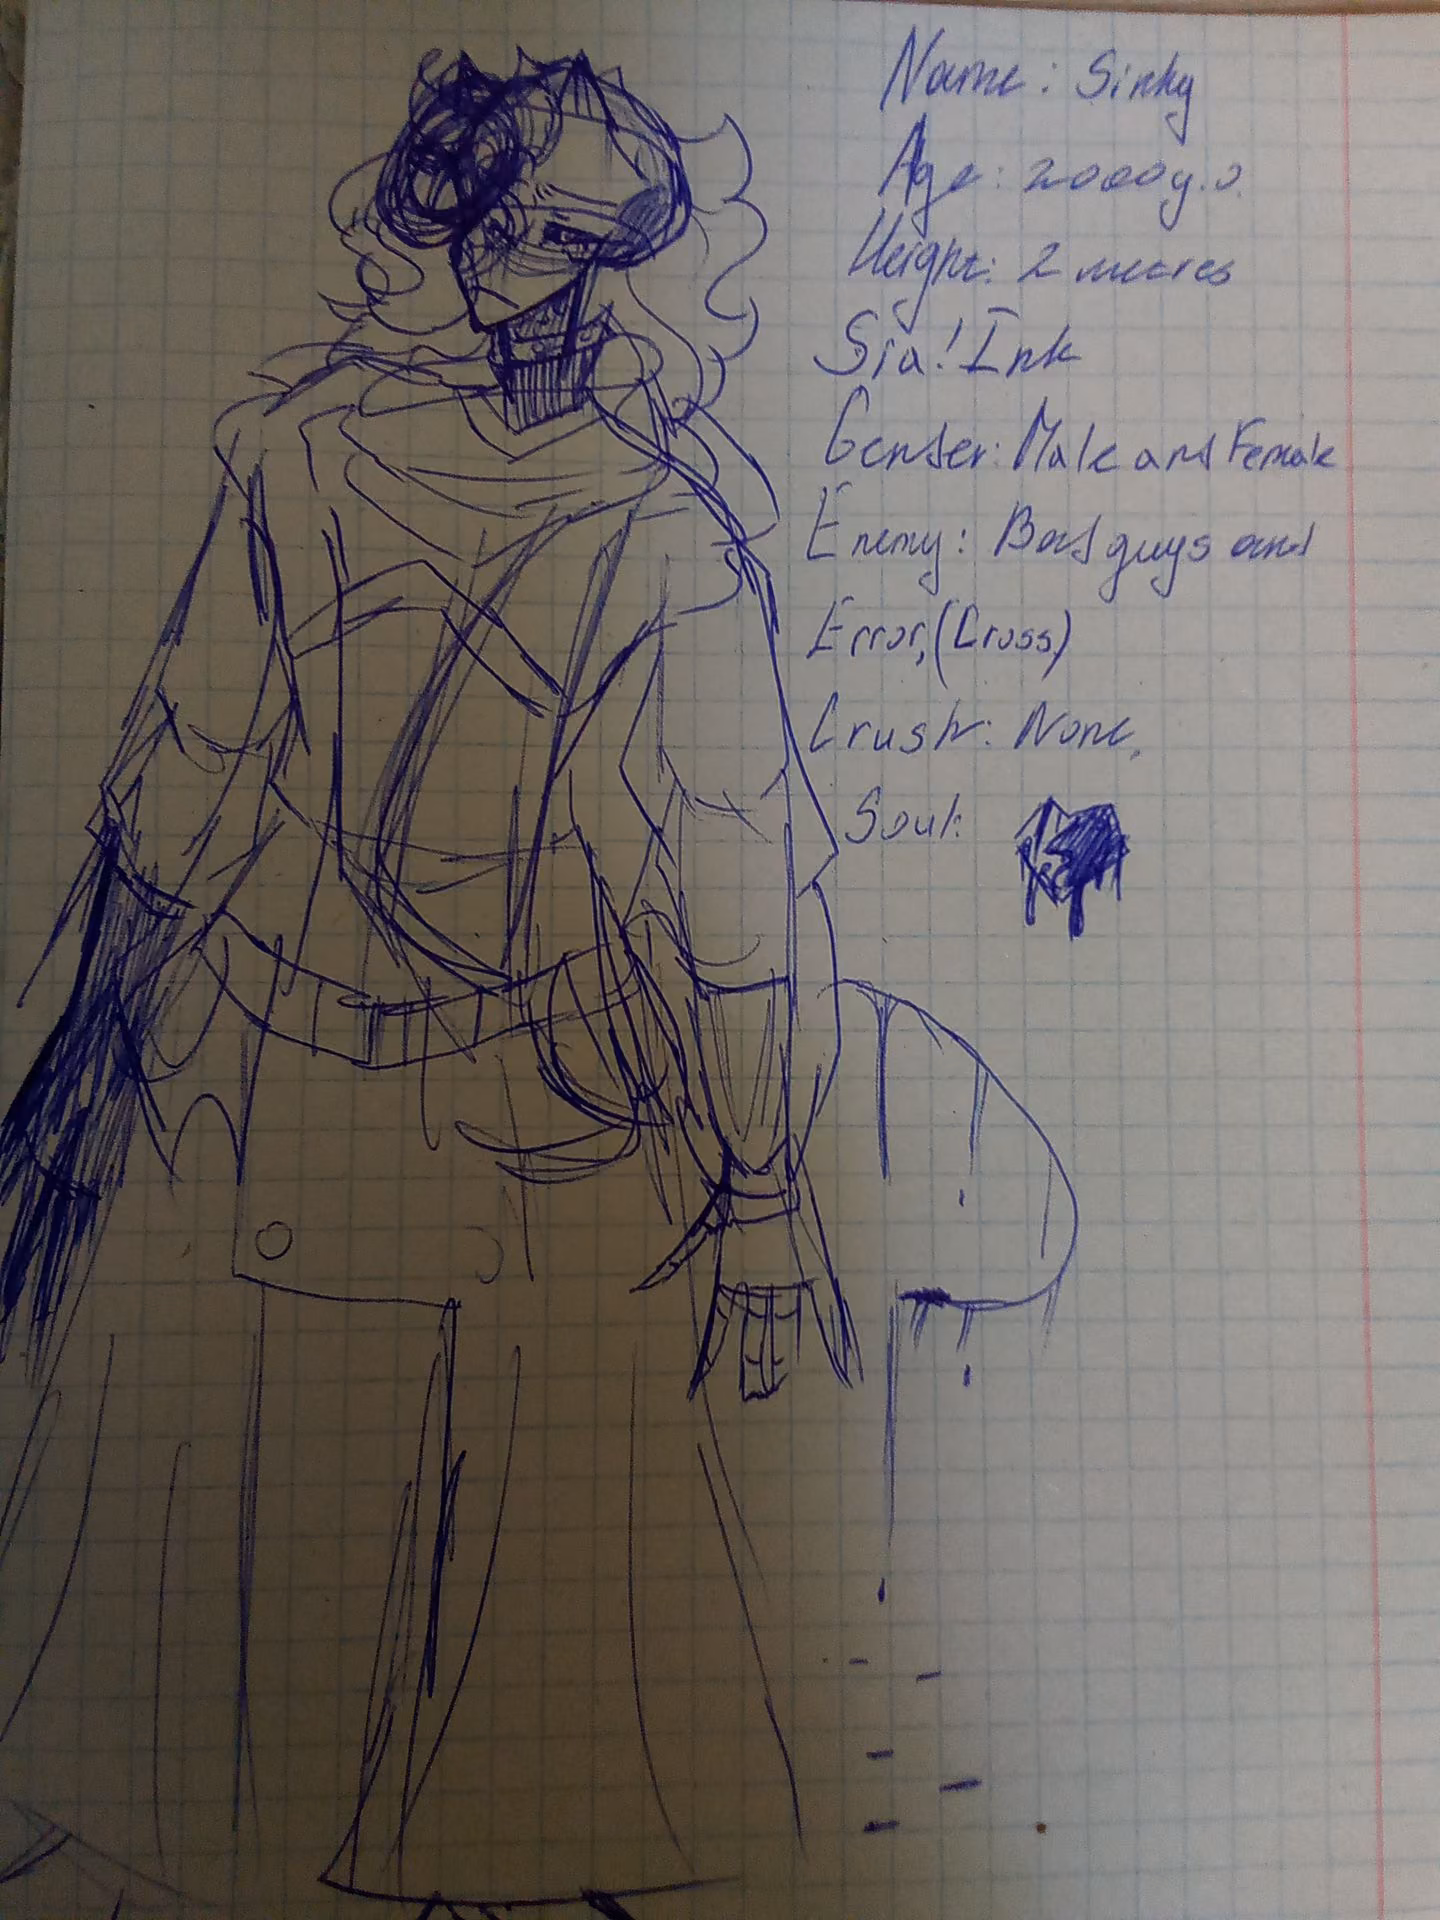 Name: Sinky
Age: 2000y.o.
Height: 2 metres
Sia! Ink
Gender: Male and Female
Enemy: Bad guys and
Error, (Cross)
Crush: None.
Soul: